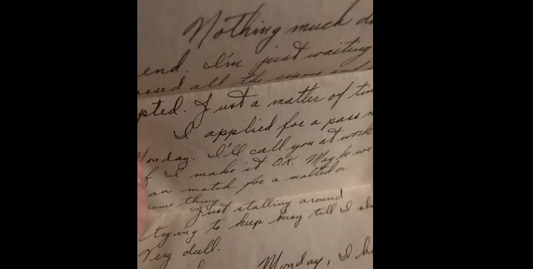 Nothing much d
end. I'm just waiting
assed all the exams and
pted. Just a matter of tim
I applied for a pass n
Monday. I'll call you at work
if I make it OK. Maybe we
an match for a malted or
some thing.
Just stalling around
trying to keep busy till I sh
Very dull.
Monday, I h